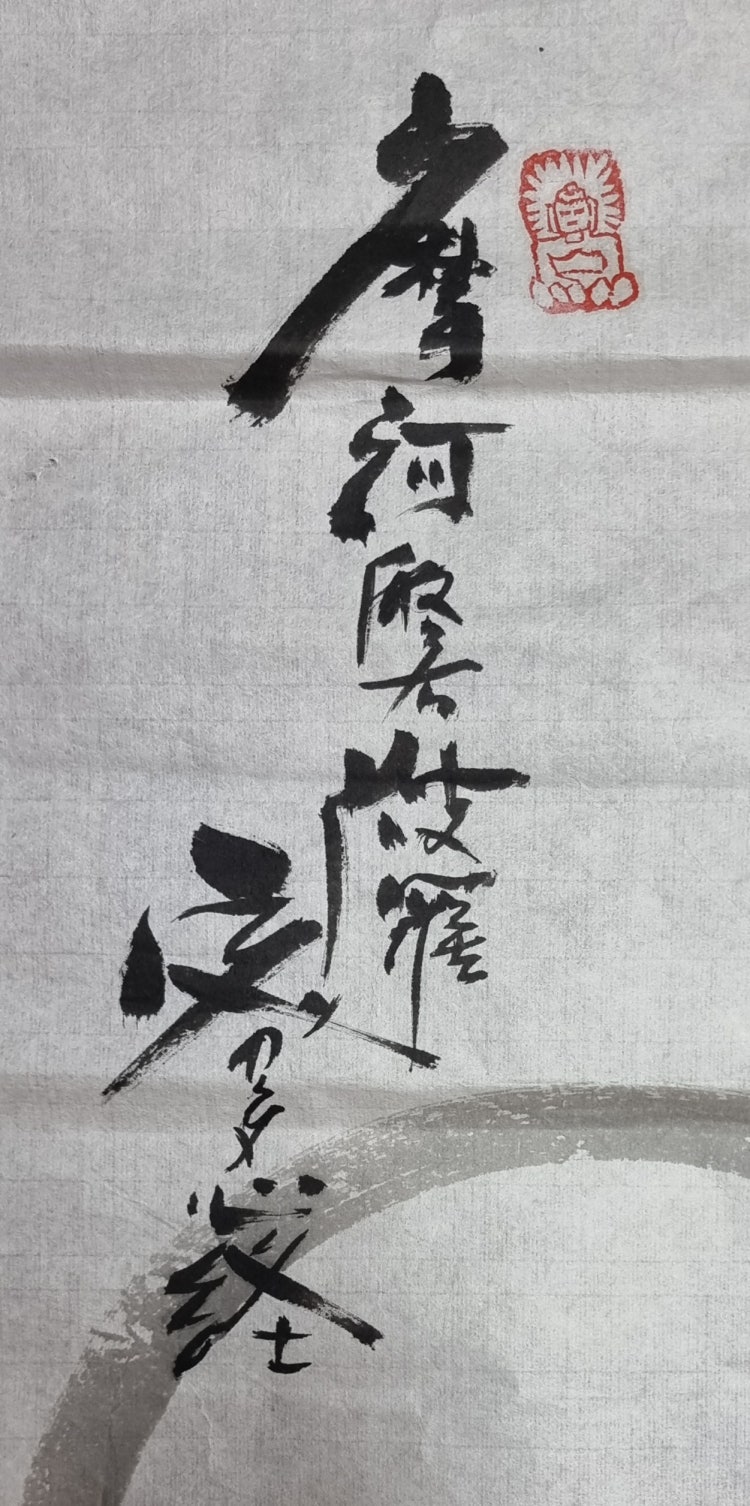 摩訶般若波羅
蜜多心經